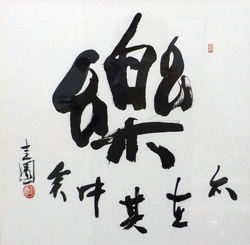 樂
亦在其中矣